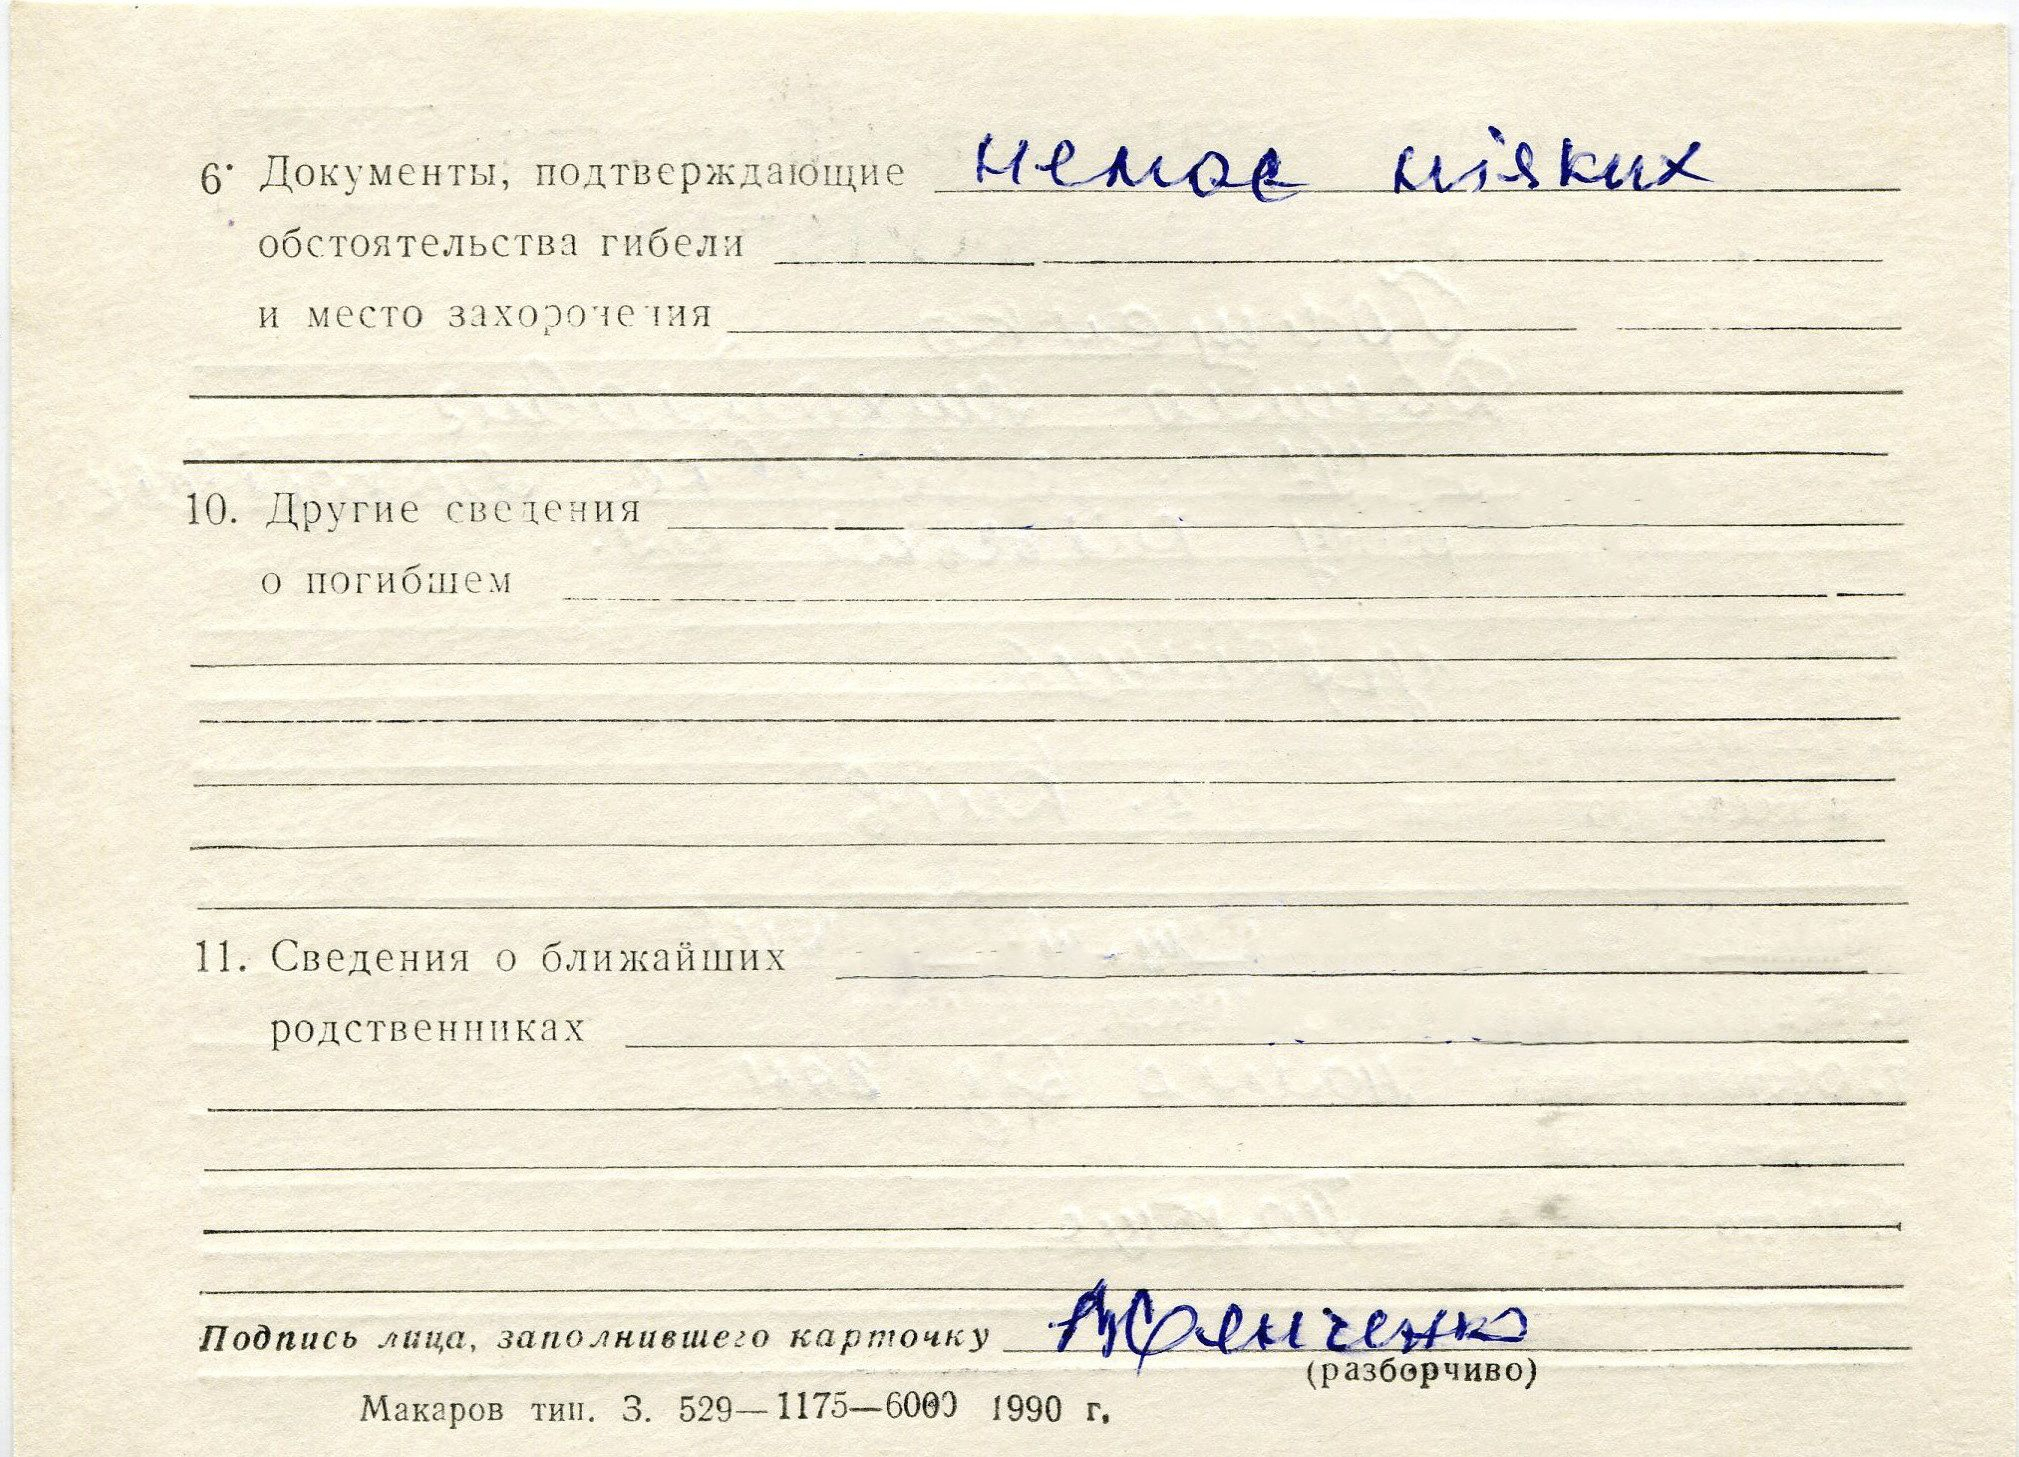 6. Документы, подтверждающие немає ніяких
обстоятельства гибели
и место захоронения
10. Другие сведения
о погибшем
11. Сведения о ближайших
родственниках
Подпись лица, заполнившего карточку
(разборчиво)
Макаров тип. З. 529—1175—6000 1990 г.